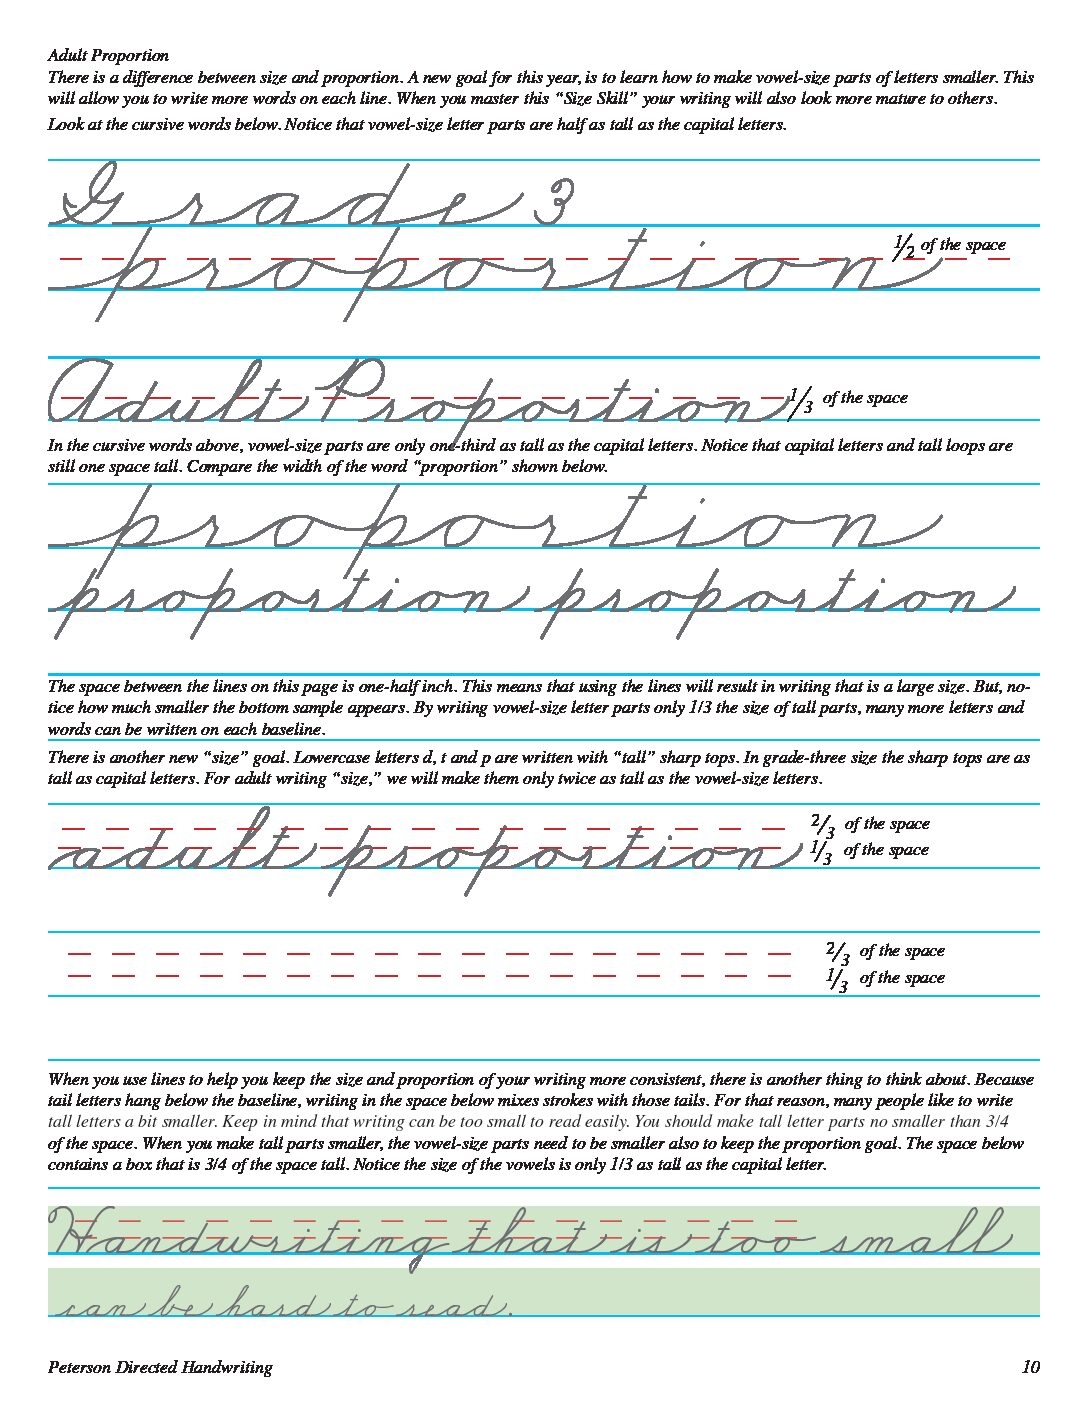 Adult Proportion
There is a difference between size and proportion. A new goal for this year, is to learn how to make vowel-size parts of letters smaller. This
will allow you to write more words on each line. When you master this “Size Skill” your writing will also look more mature to others.
Look at the cursive words below. Notice that vowel-size letter parts are half as tall as the capital letters.
Grade 3
proportion 1/2 of the space
Adult Proportion 1/3 of the space
In the cursive words above, vowel-size parts are only one-third as tall as the capital letters. Notice that capital letters and tall loops are
still one space tall. Compare the width of the word “proportion” shown below.
proportion
proportion proportion
The space between the lines on this page is one-half inch. This means that using the lines will result in writing that is a large size. But, no-
tice how much smaller the bottom sample appears. By writing vowel-size letter parts only 1/3 the size of tall parts, many more letters and
words can be written on each baseline.
There is another new “size” goal. Lowercase letters d, t and p are written with “tall” sharp tops. In grade-three size the sharp tops are as
tall as capital letters. For adult writing “size,” we will make them only twice as tall as the vowel-size letters.
2/3 of the space
adult proportion 1/3 of the space
2/3 of the space
1/3 of the space
When you use lines to help you keep the size and proportion of your writing more consistent, there is another thing to think about. Because
tail letters hang below the baseline, writing in the space below mixes strokes with those tails. For that reason, many people like to write
tall letters a bit smaller. Keep in mind that writing can be too small to read easily. You should make tall letter parts no smaller than 3/4
of the space. When you make tall parts smaller, the vowel-size parts need to be smaller also to keep the proportion goal. The space below
contains a box that is 3/4 of the space tall. Notice the size of the vowels is only 1/3 as tall as the capital letter.
Handwriting that is too small
can be hard to read.
Peterson Directed Handwriting 10